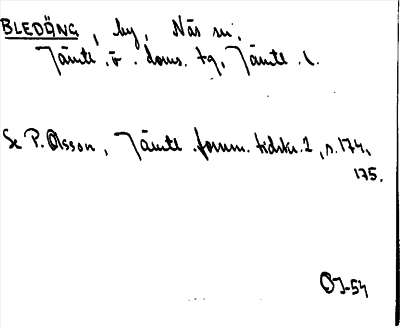 BLEDÖNG, by, Näs sn,
Jämtl. ö. doms. tg, Jämtl. l.
Se P. Olsson, Jämtl. fornm. tidskr. 1, s. 174,
175.
OJ-54